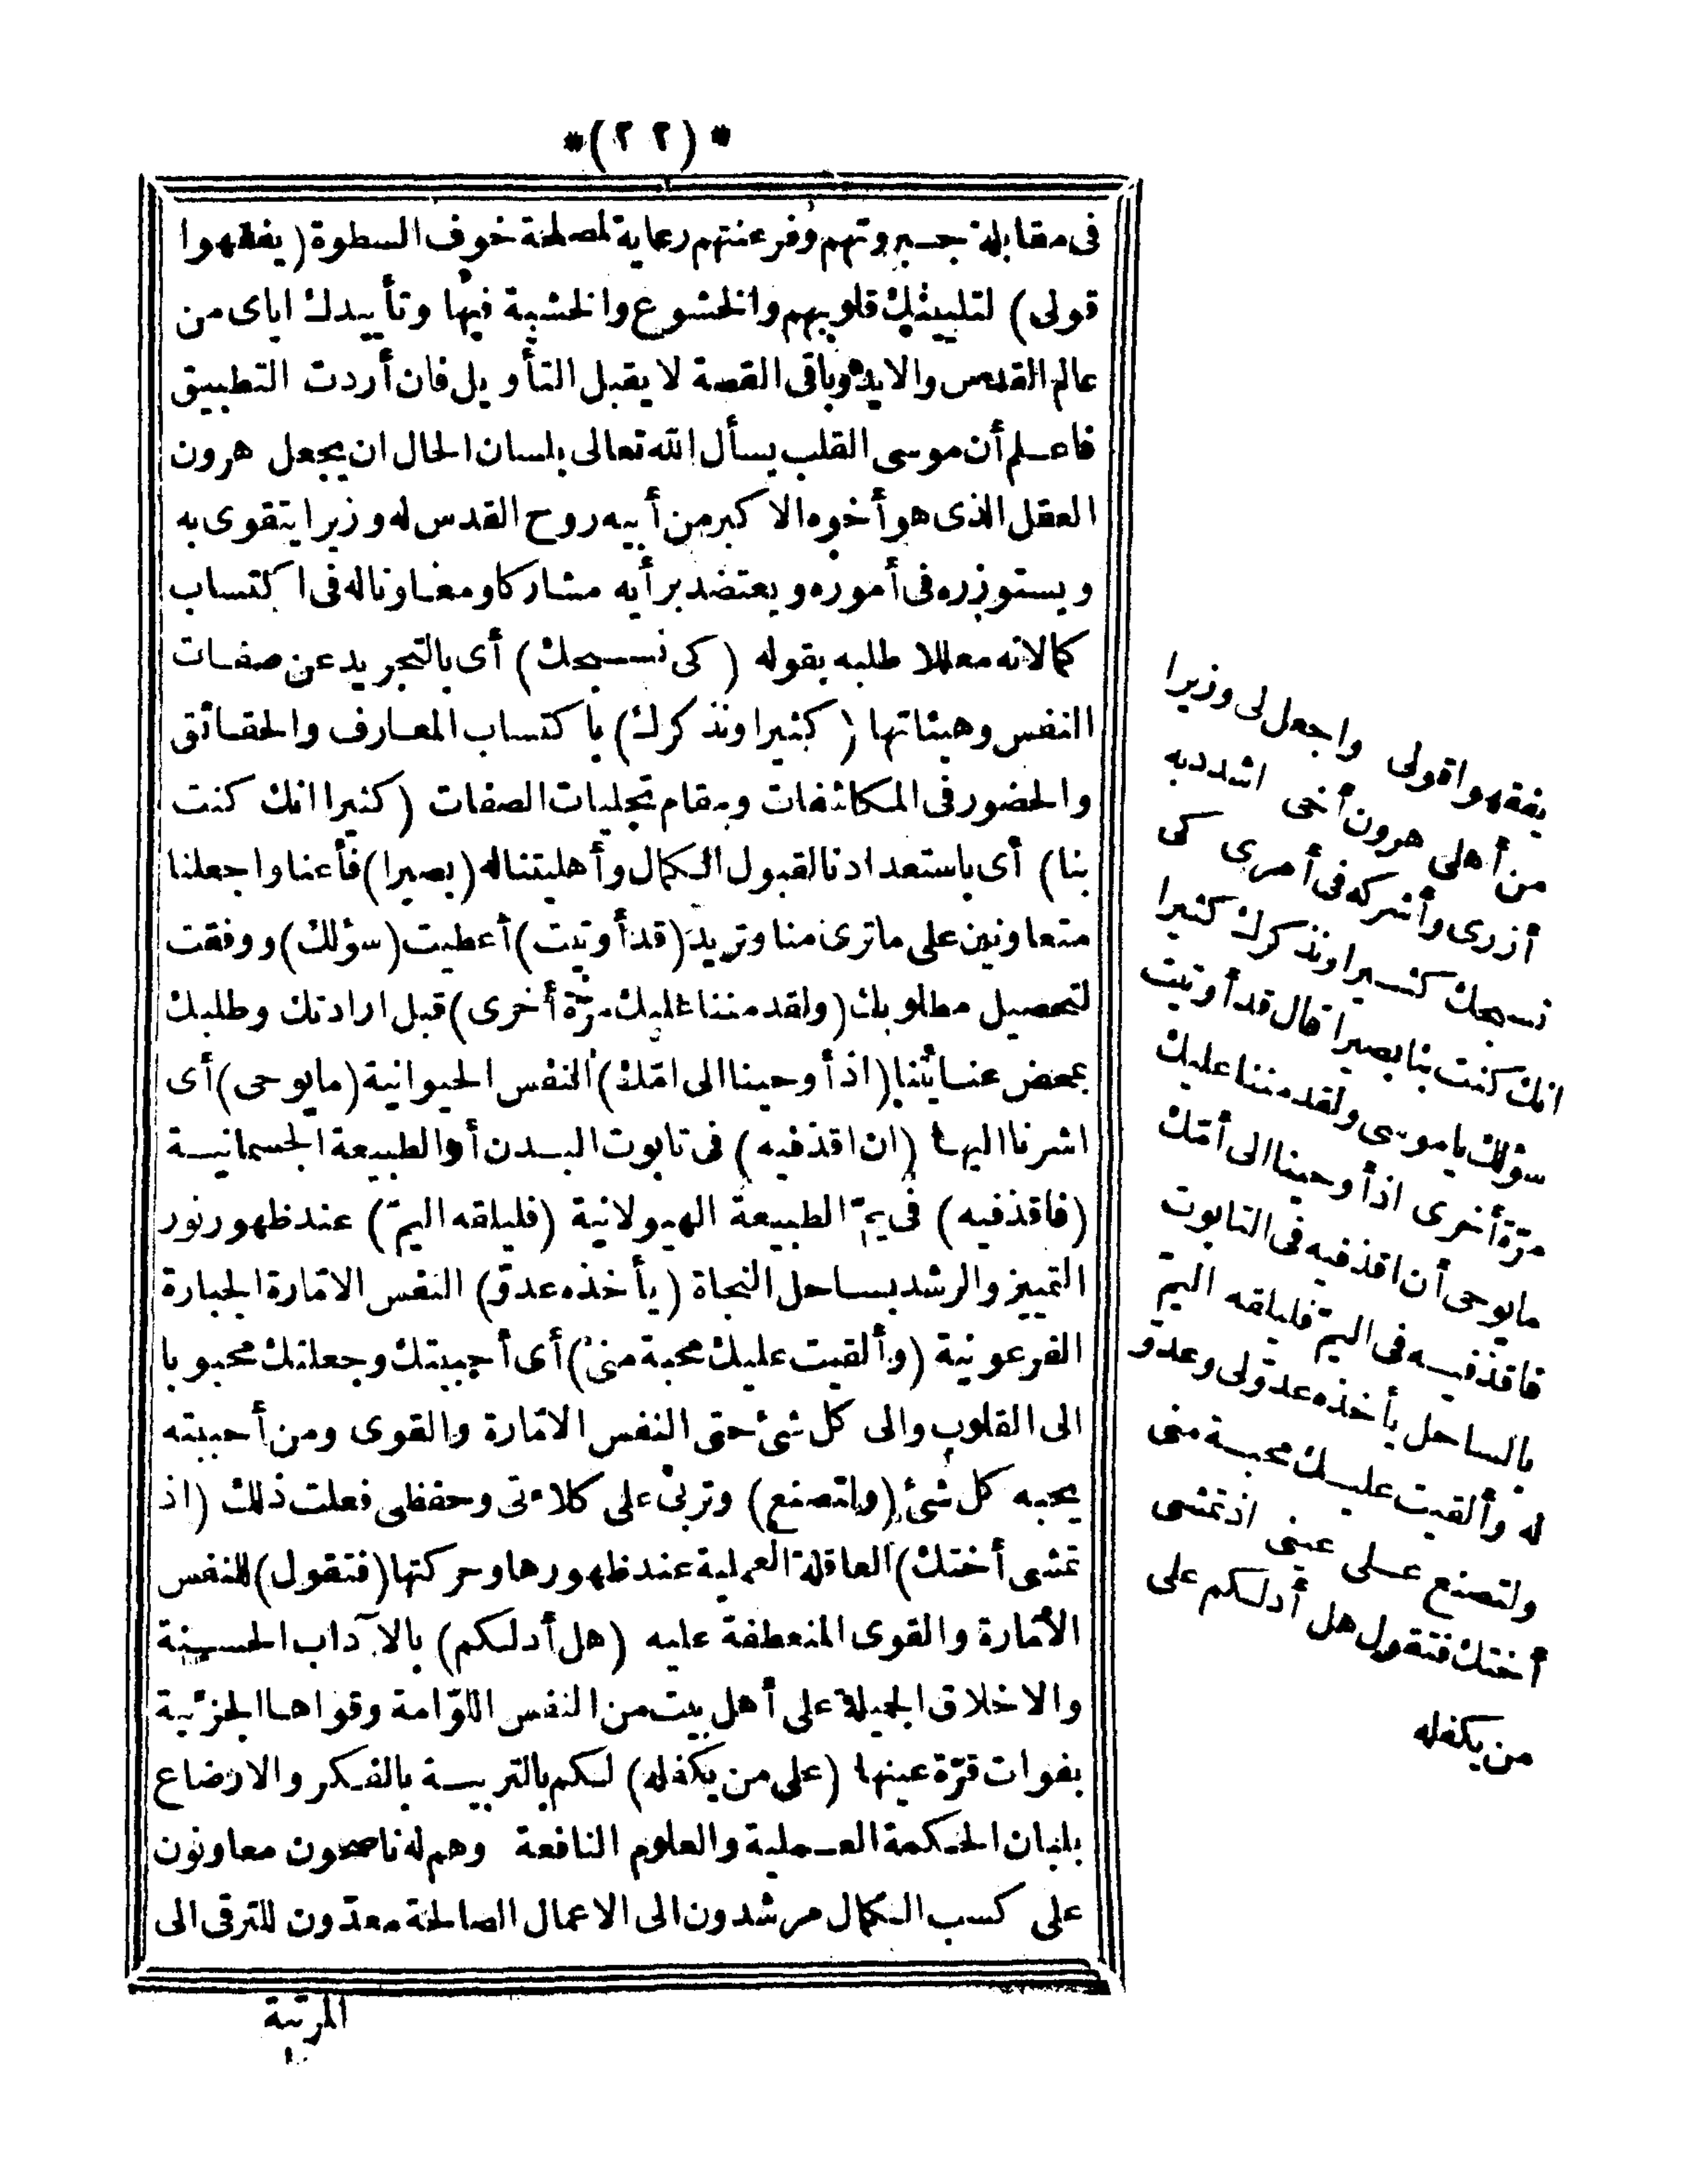 *(٢٢)*
فى مقابلة جبروتهم وفرعنتهم رعاية لمصلحة خوف السطوة (يفقهوا
قولى) لتليينك قلوبهم والخشوع والخشية فيها وتأييدك اياى من
عالم القدس والايد وباقى القصة لا يقبل التأويل فان أردت التطبيق
فاعلم أن موسى القلب يسأل الله تعالى بلسان الحال ان يجعل هرون
العقل الذى هو أخوه الاكبر من أبيه روح القدس له وزيرا يتقوى به
ويستوزره فى أموره ويعتضد برأيه مشاركا ومعاونا له فى اكتساب
كمالاته معللا طلبه بقوله (كى نسبحك) أى بالتجريد عن صفات
النفس وهيئاتها (كثيرا ونذكرك) باكتساب المعارف والحقائق
والحضور فى المكاشفات ومقام تجليات الصفات (كثيرا انك كنت
بنا) أى باستعدادنا لقبول الكمال وأهليتنا له (بصيرا) فأعنا واجعلنا
متعاونين على ما ترى منا وتريد (قد أوتيت) أعطيت (سؤلك) ووفقت
لتحصيل مطلوبك (ولقد مننا عليك مرّة أخرى) قبل ارادتك وطلبك
بمحض عنايتنا (اذ أوحينا الى امّك) النفس الحيوانية (ما يوحى) أى
اشرنا اليها (ان اقذفيه) فى تابوت البدن أو الطبيعة الجسمانية
(فاقذفيه) فى يمّ الطبيعة الهيولانية (فليلقه اليمّ) عند ظهور نور
التمييز والرشد بساحل النجاة (يأخذه عدوّ) النفس الامّارة الجبارة
الفرعونية (وألقيت عليك محبة منى) أى أحببتك وجعلتك محبوبا
الى القلوب والى كل شئ حتى النفس الامّارة والقوى ومن أحببته
يحبه كل شئ (ولتصنع) وتربى على كلاءتى وحفظى فعلت ذلك (اذ
تمشى أختك) العاقلة العملية عند ظهورها وحركتها (فتقول) للنفس
الأمّارة والقوى المنعطفة عليه (هل أدلكم) بالآداب الحسينة
والاخلاق الجميلة على أهل بيت من النفس اللوّامة وقواها الجزئية
بفوات قرّة عينها (على من يكفله) لكم بالتربية بالفكر والارضاع
بلبان الحكمة العملية والعلوم النافعة وهم له ناصحون معاونون
على كسب الكمال مرشدون الى الاعمال الصالحة معدّون للترقى الى
المرتبة
يفقهوا قولى واجعل لى وزيرا
من أهلى هرون أخى اشدد به
أزرى وأشركه فى أمرى كى
نسبحك كثيرا ونذكرك كثيرا
انك كنت بنا بصيرا قال قد أوتيت
سؤلك يا موسى ولقد مننا عليك
مرّة أخرى اذ أوحينا الى أمّك
ما يوحى أن اقذفيه فى التابوت
فاقذفيه فى اليمّ فليلقه اليمّ
بالساحل يأخذه عدوّلى وعدوّ
له وألقيت عليك محبة منى
ولتصنع على عينى اذ تمشى
أختك فتقول هل أدلكم على
من يكفله